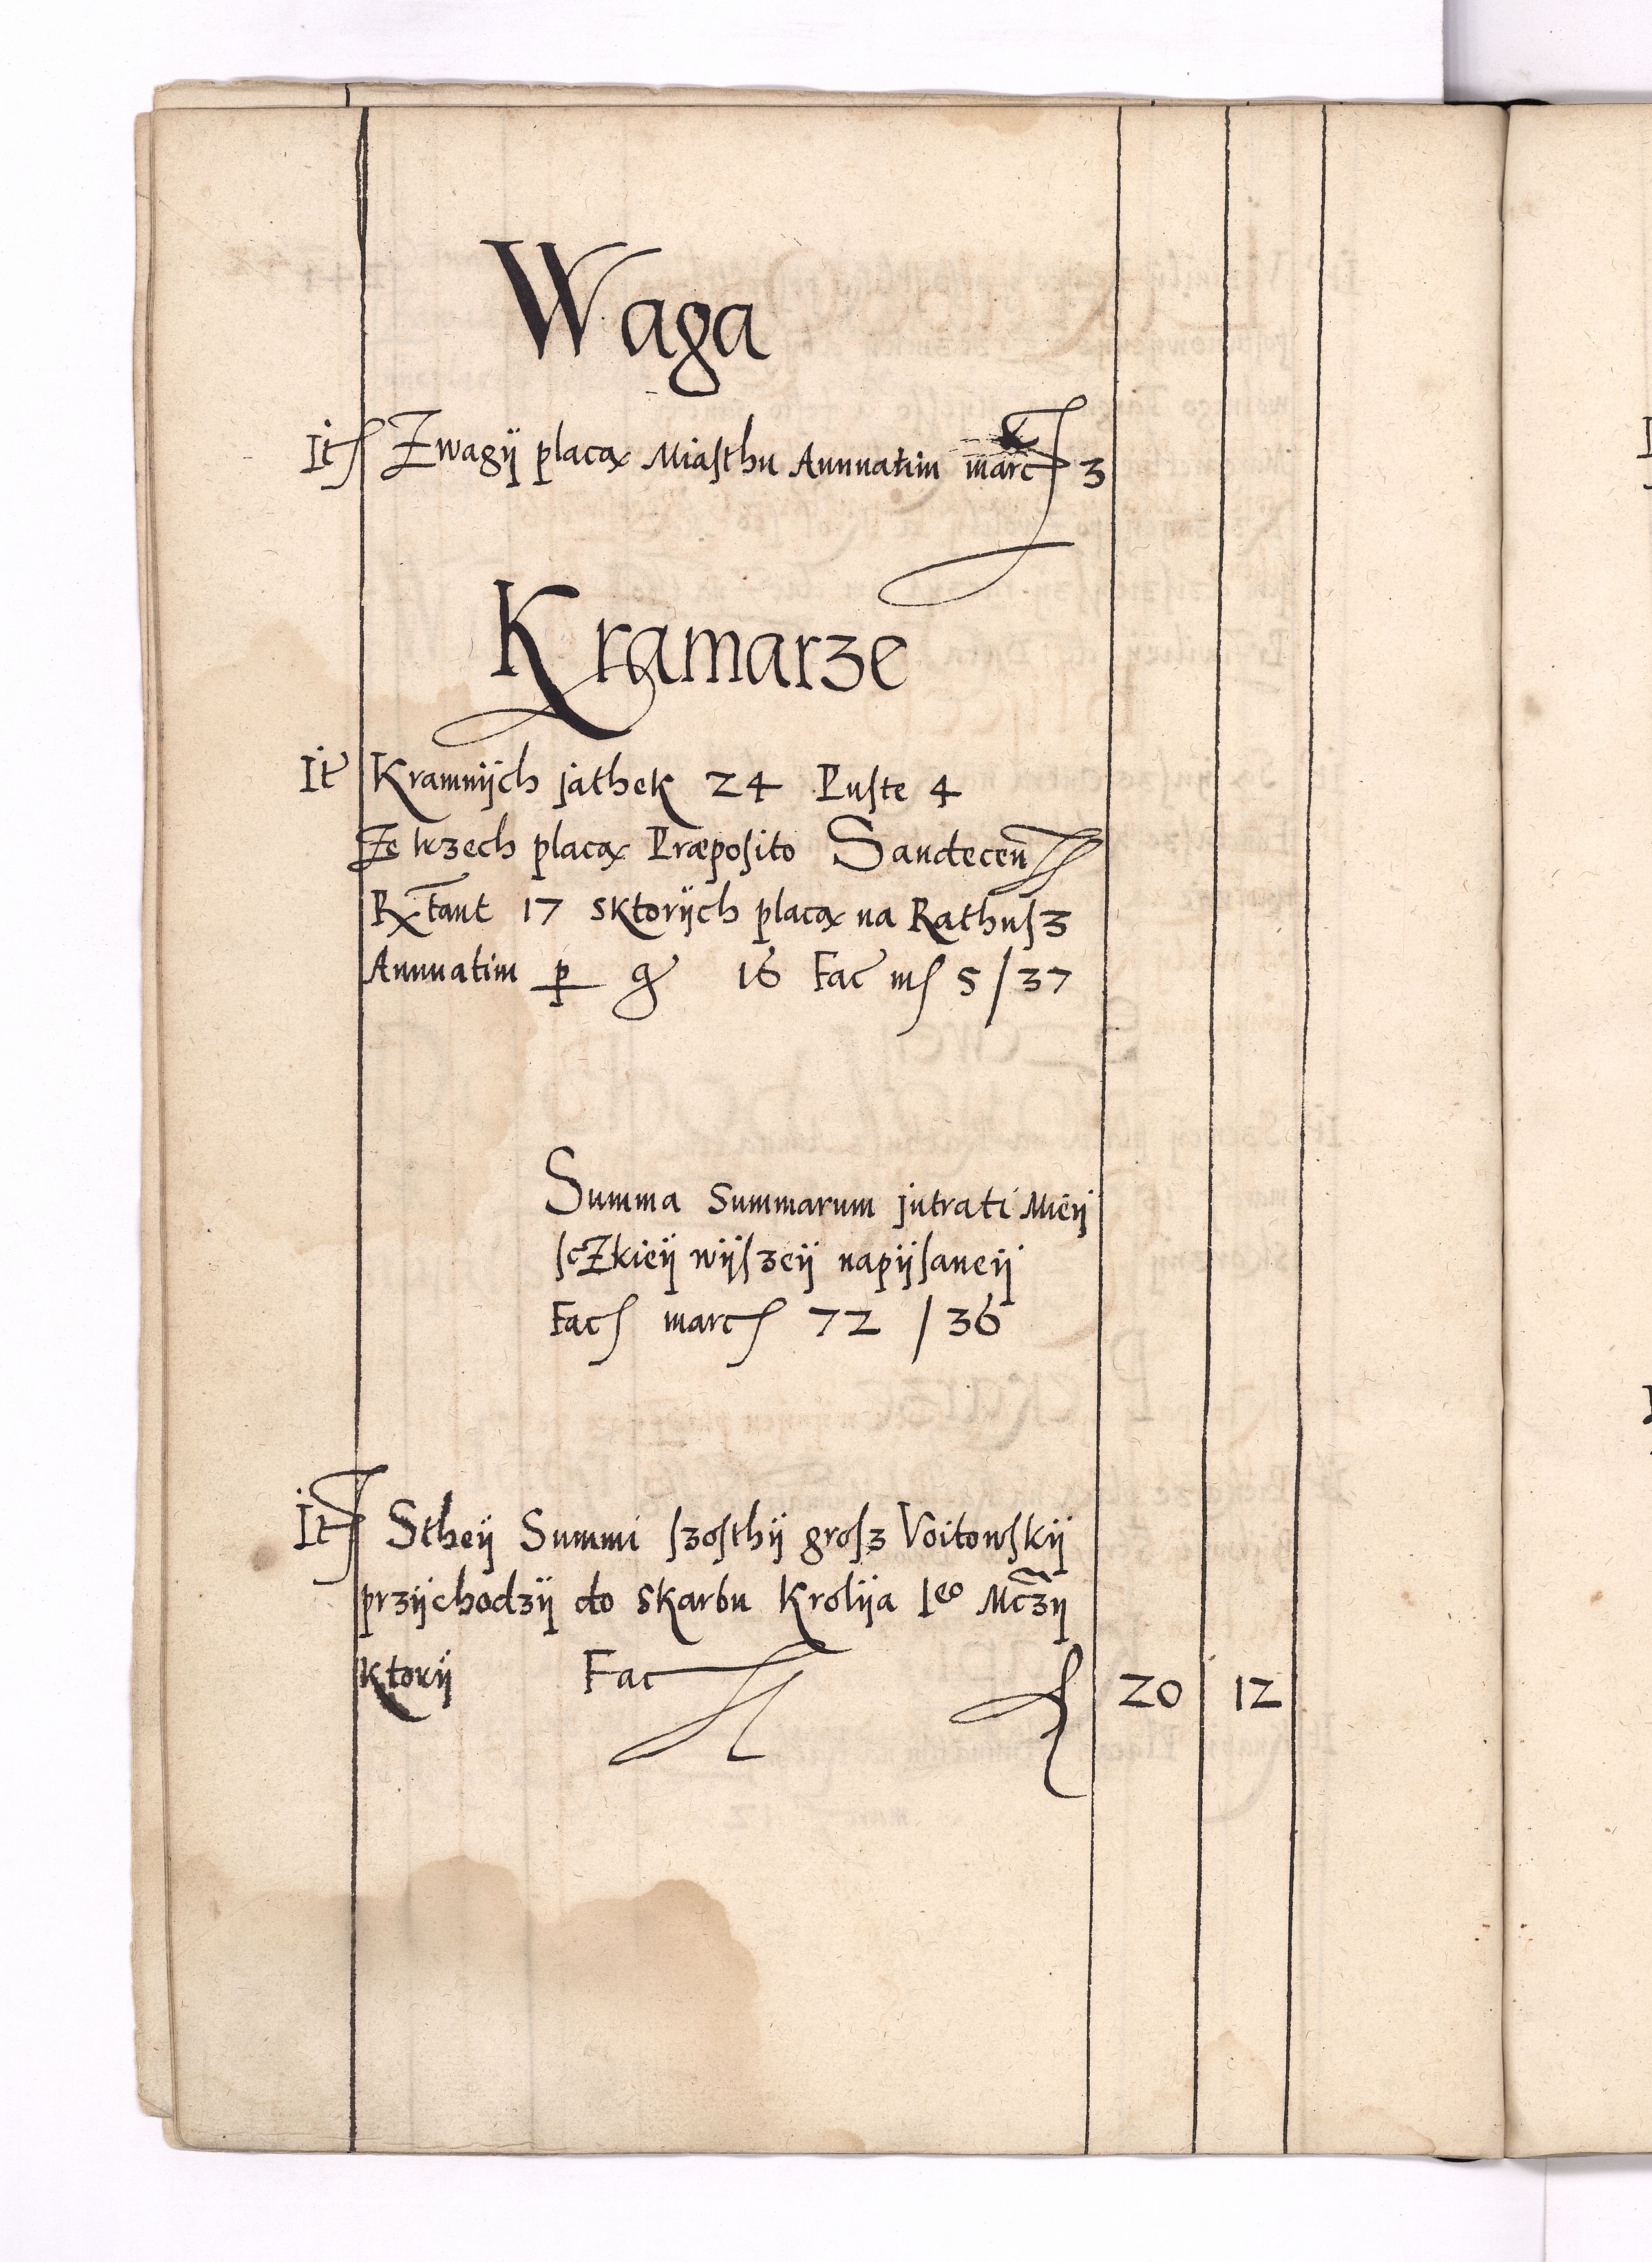 Waga
It Zwagÿ placą Miasthu Annuatim marc 3
Kramarze
It Kramnÿch jathek 24 Puste 4
Ze trzech placą Præposito Sandecen
Rxtant 17 sktorÿch placą na Rathusz
Annuatim p g 16 Fac m 5/37
Summa Summarum jntrati Mieÿ
sczkieÿ wÿszeÿ napÿsaneÿ
Fac marc 72 /36
It Stheÿ Summi szosthÿ grosz Voitowskÿ
przÿchodzÿ do skarbu Krolÿa Ieo Mczÿ
ktorÿ Fac 20 12